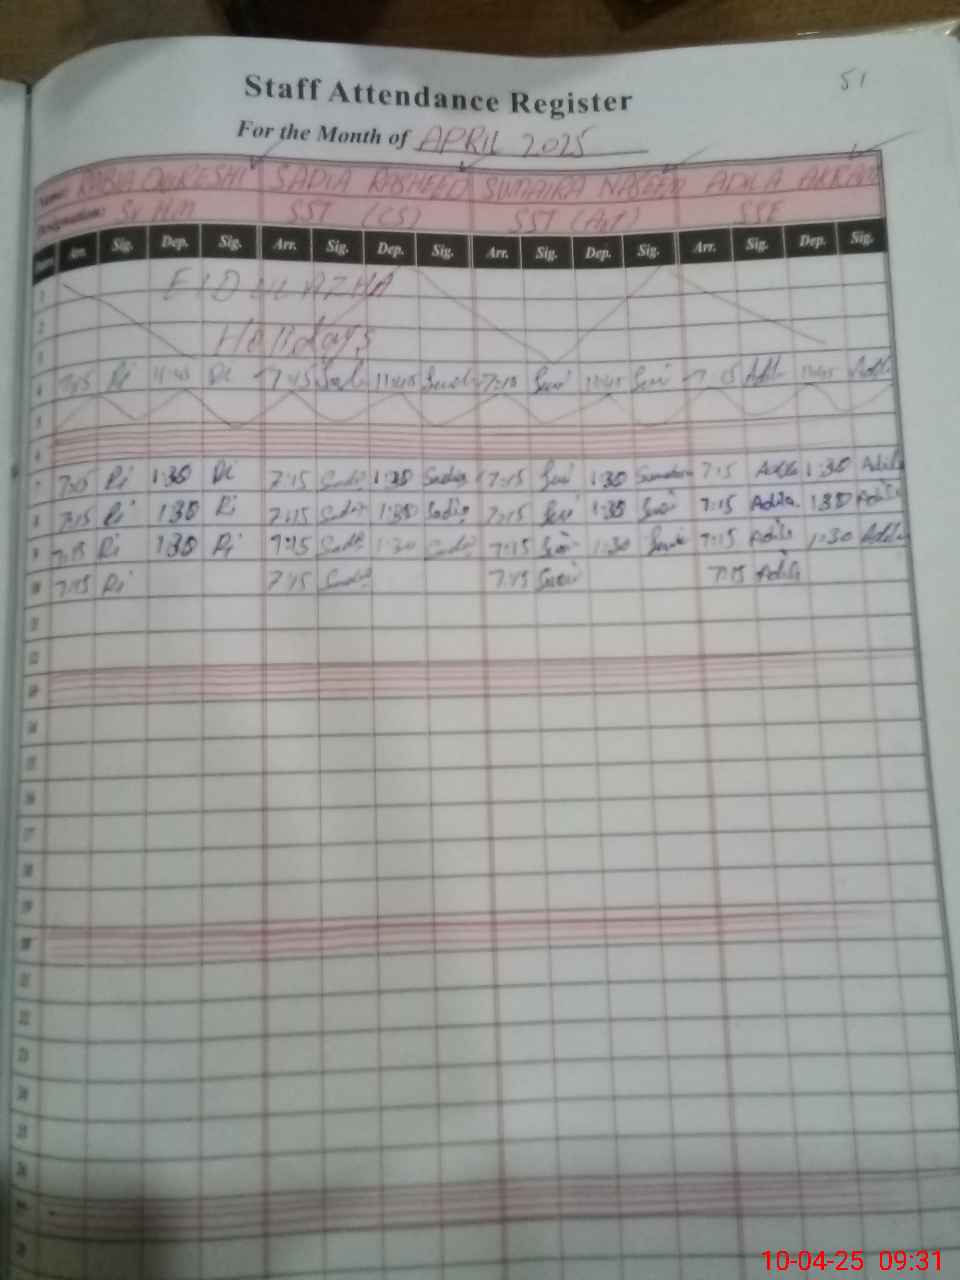 51
Staff Attendance Register
For the Month of APRIL 2025
Name: RABIA QURESHI SADIA RASHEED SUMAIRA NASEEM ADILA AKRAM
Designation: Sr HM SST (CS) SST (Art) SSE
Arr. Sig. Dep. Sig. Arr. Sig. Dep. Sig. Arr. Sig. Dep. Sig. Arr. Sig. Dep. Sig.
1 EID UL AZHA
2 Holidays
3
4 7:15 11:45 7:15 11:45 7:15 11:45 7:15 Adila 11:45 Adila
5
6
7 7:15 Ri 1:30 Ri 7:15 Sadia 1:30 Sadia 7:15 1:30 Sumaira 7:15 Adila 1:30 Adila
8 7:15 Ri 1:30 Ri 7:15 Sadia 1:30 Sadia 7:15 1:30 7:15 Adila 1:30 Adila
9 7:15 Ri 1:30 Ri 7:15 Sadia 1:30 Sadia 7:15 1:30 7:15 Adila 1:30 Adila
10 7:15 Ri 7:15 Sadia 7:15 7:15 Adila
11
12
13
14
15
16
17
18
19
20
21
22
23
24
25
26
27
28
10-04-25 09:31